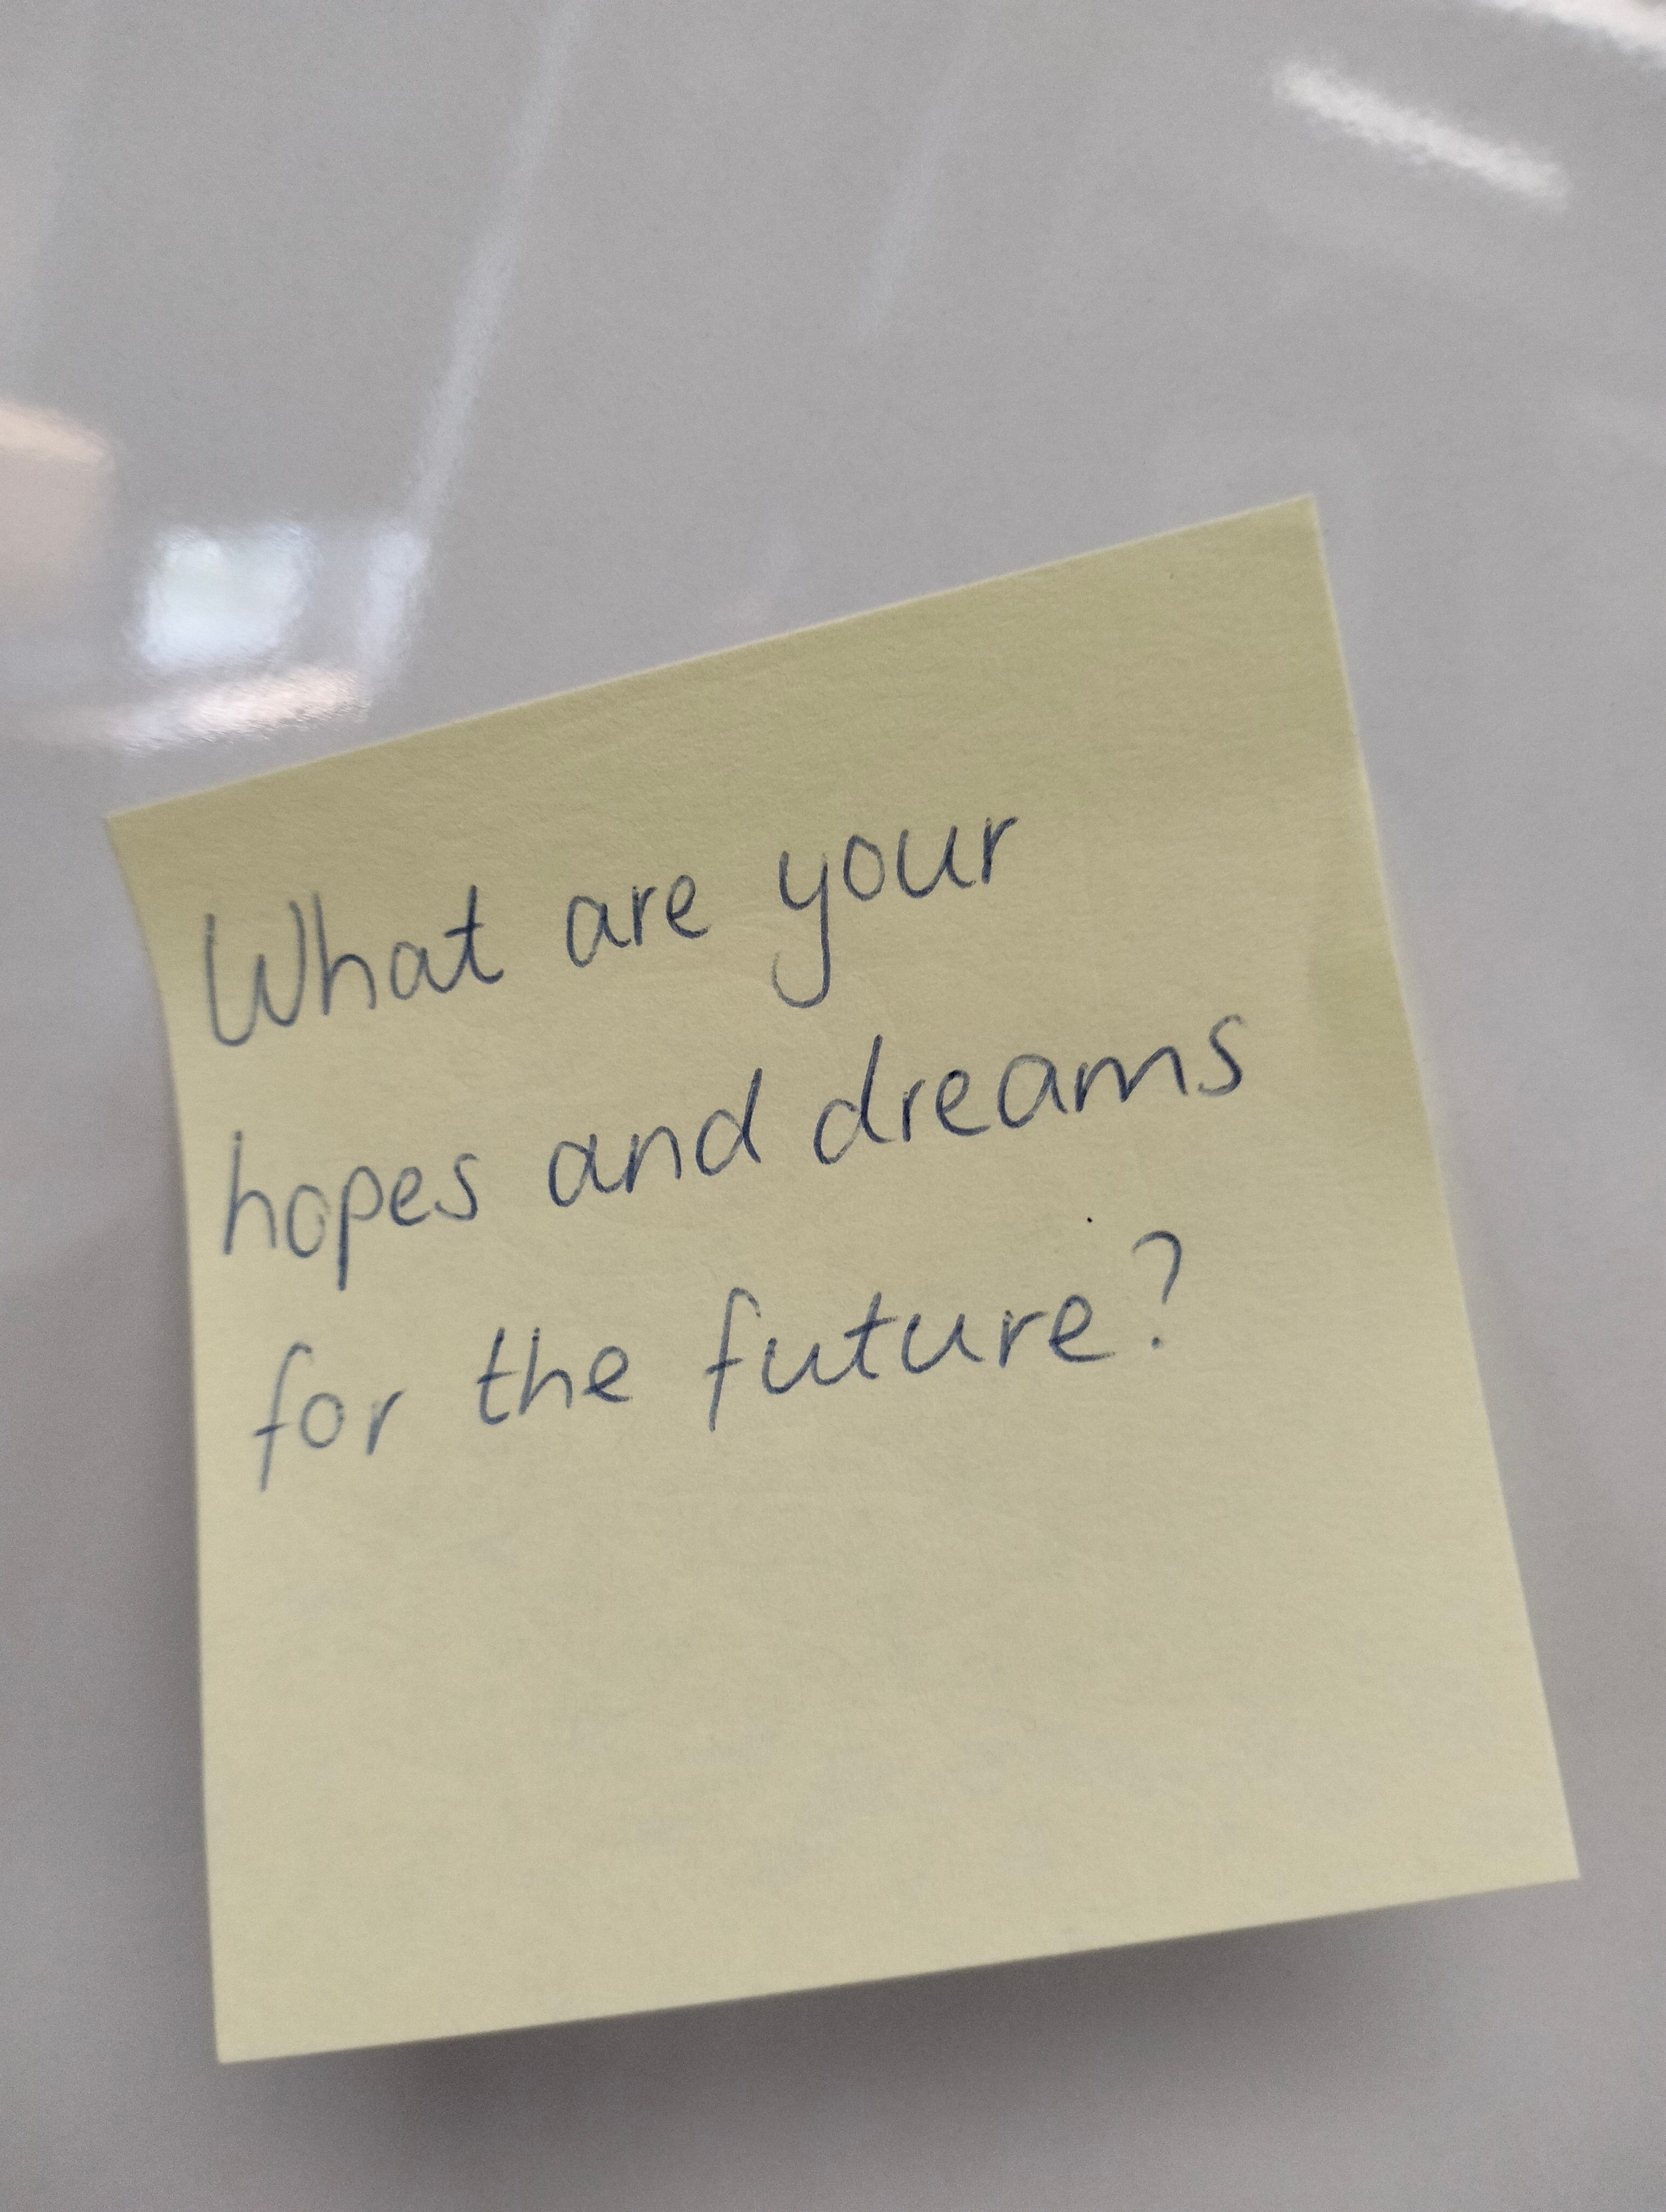 What are your
hopes and dreams
for the future?